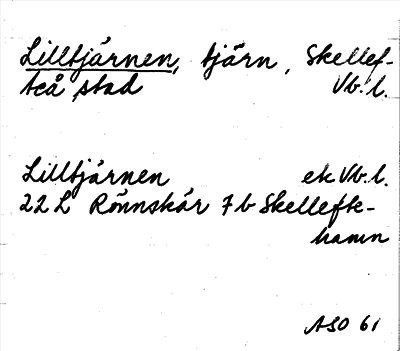 Lilltjärnen, tjärn, Skellef-
teå stad Vb. l.
Lilltjärnen ek Vb. l.
22 L Rönnskär 7 b Skellefte-
hamn
ASO 61